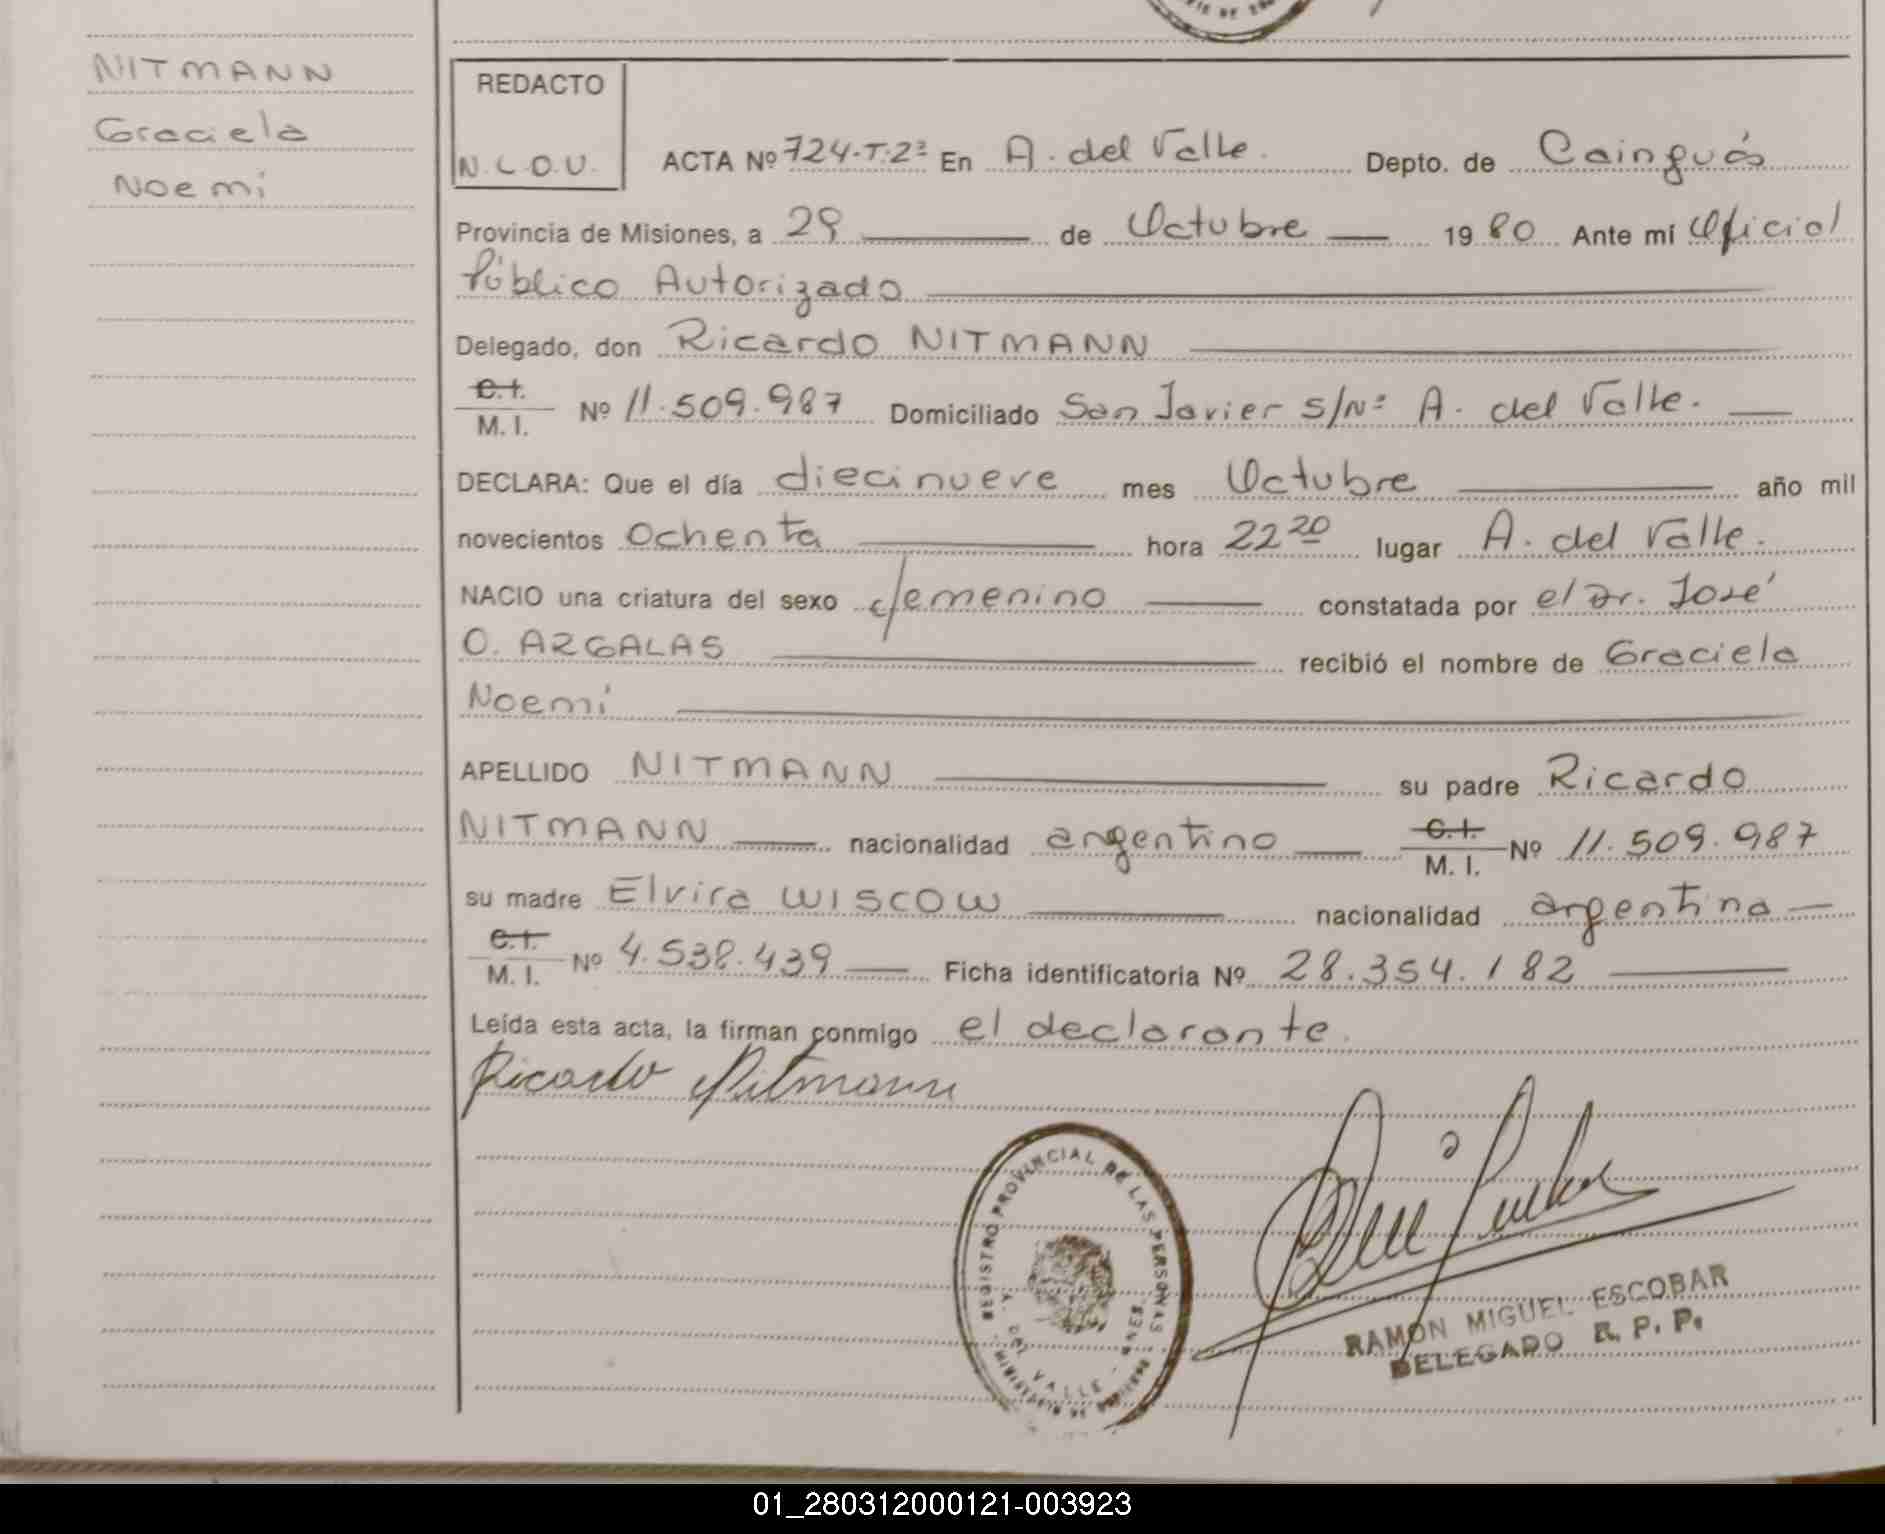 NITMANN
Graciela
Noemí
REDACTO
N.L.O.V.
ACTA Nº 724-T.2º En A. del Valle. Depto. de Cainguás
Provincia de Misiones, a 29 de Octubre 1980 Ante mí Oficial
Público Autorizado
Delegado, don Ricardo NITMANN
C.I.
M. I. Nº 11.509.987 Domiciliado San Javier s/Nº A. del Valle.
DECLARA: Que el día diecinueve mes Octubre año mil
novecientos Ochenta hora 22 20 lugar A. del Valle.
NACIO una criatura del sexo femenino constatada por el Dr. José
O. ARGALAS recibió el nombre de Graciela
Noemí
APELLIDO NITMANN su padre Ricardo
NITMANN nacionalidad argentino C.I. M. I. Nº 11.509.987
su madre Elvira WISCOW nacionalidad argentina
C.I. M. I. Nº 4.538.439 Ficha identificatoria Nº 28.354.182
Leída esta acta, la firman conmigo el declarante.
Ricardo Nitmann
REGISTRO PROVINCIAL DE LAS PERSONAS
A. DEL VALLE
RAMON MIGUEL ESCOBAR
DELEGADO R. P. P.
01_280312000121-003923